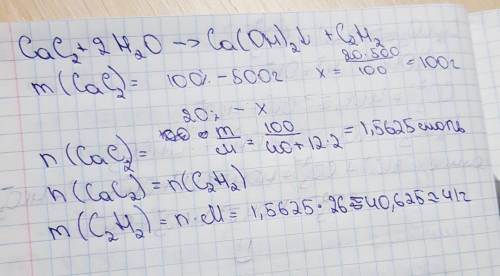 CaC₂ + 2H₂O → Ca(OH)₂↓ + C₂H₂
m(CaC₂) = 100% - 500г x = 20·500/100 = 100г
20% - x
n(CaC₂) = m/M = 100/40+12·2 = 1,5625 моль
n(CaC₂) = n(C₂H₂)
m(C₂H₂) = n·M = 1,5625·26 = 40,625 ≈ 41г